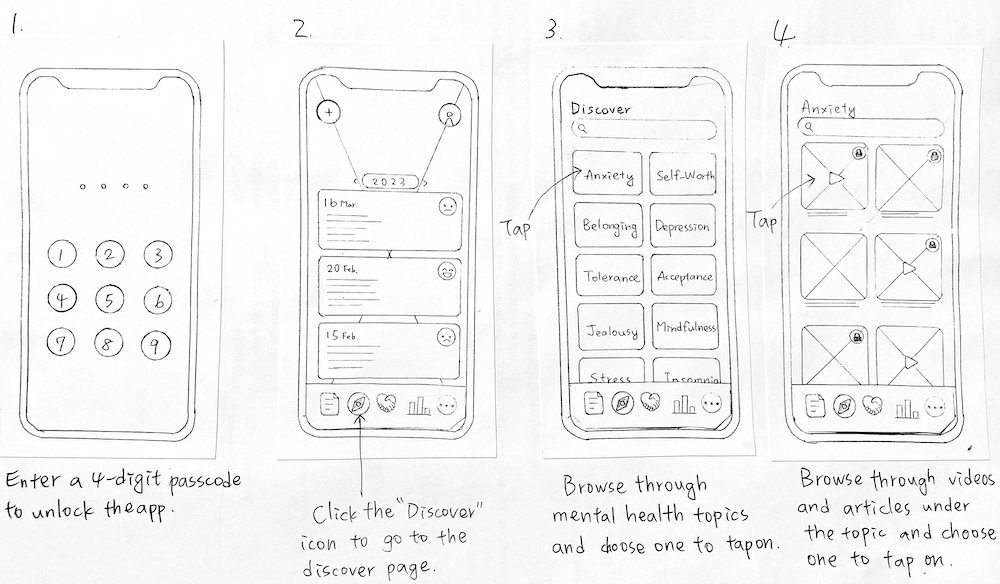 1.
1 2 3
4 5 6
7 8 9
Enter a 4-digit passcode
to unlock the app.
2.
+
< 2023 >
16 Mar.
20 Feb.
15 Feb.
Click the "Discover"
icon to go to the
discover page.
3.
Discover
Tap
Anxiety Self-Worth
Belonging Depression
Tolerance Acceptance
Jealousy Mindfulness
Stress Insomnia
Browse through
mental health topics
and choose one to tap on.
4.
Anxiety
Tap
Browse through videos
and articles under
the topic and choose
one to tap on.